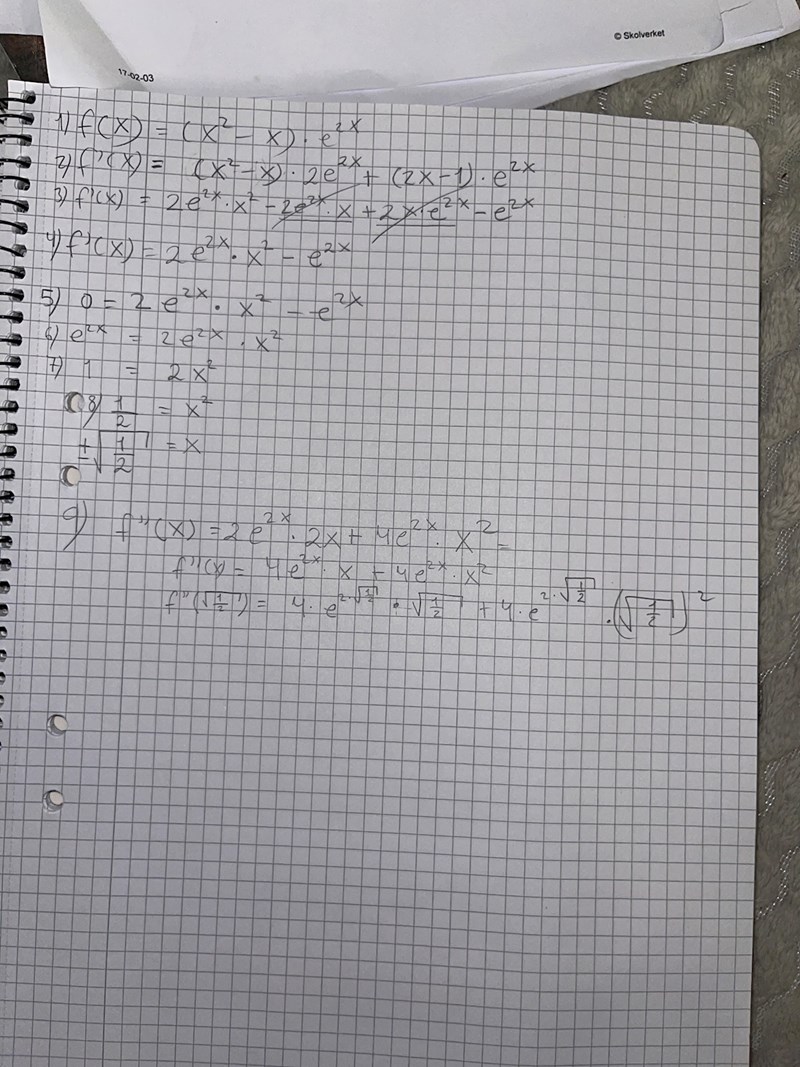 © Skolverket
17-02-03
1) f(x) = (x² - x) · e^{2x}
2) f'(x) = (x² - x) · 2e^{2x} + (2x - 1) · e^{2x}
3) f'(x) = 2e^{2x} · x² - 2e^{2x} · x + 2x · e^{2x} - e^{2x}
4) f'(x) = 2e^{2x} · x² - e^{2x}
5) 0 = 2e^{2x} · x² - e^{2x}
6) e^{2x} = 2e^{2x} · x²
7) 1 = 2x²
8) 1/2 = x²
±√(1/2) = x
9) f''(x) = 2e^{2x} · 2x + 4e^{2x} · x² =
f''(x) = 4e^{2x} · x + 4e^{2x} · x²
f''(√(1/2)) = 4 · e^{2·√(1/2)} · √(1/2) + 4 · e^{2·√(1/2)} · (√(1/2))²